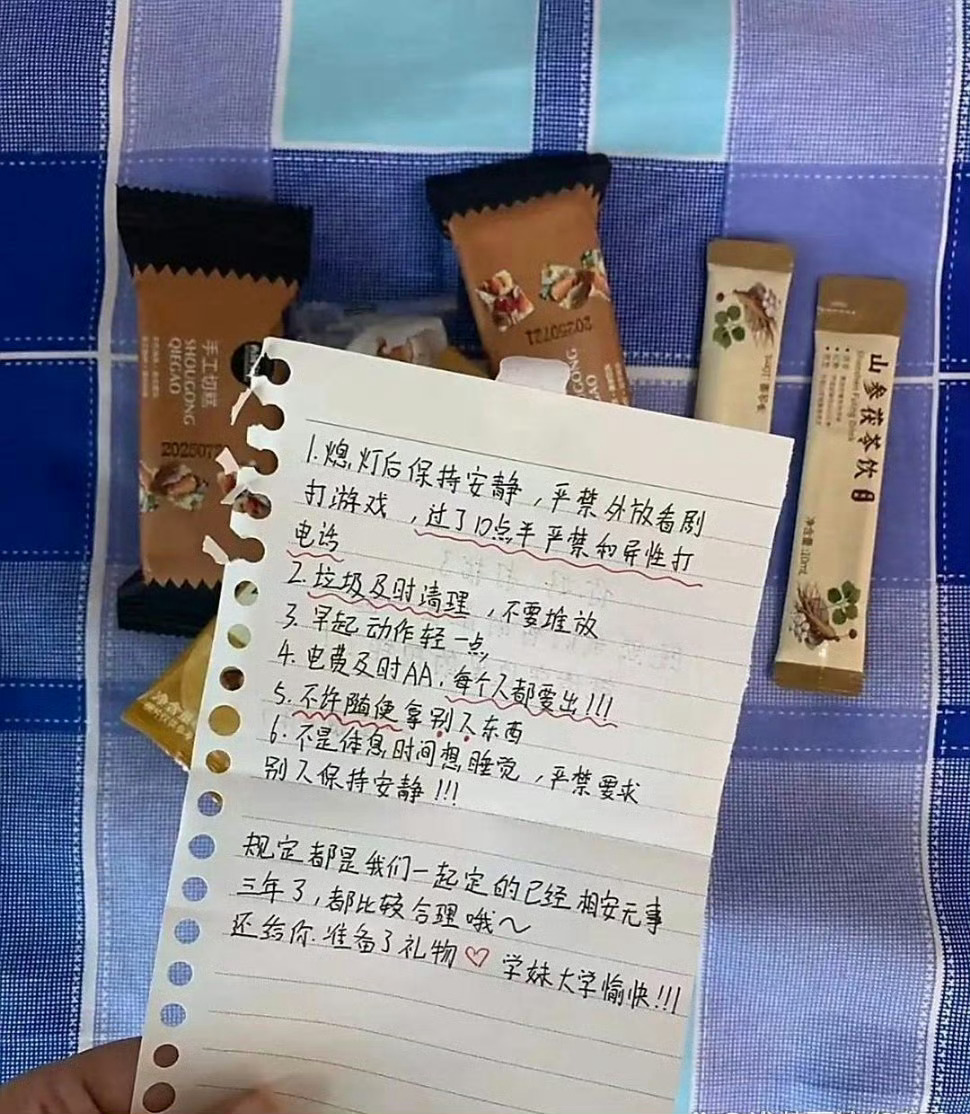 手工切糕
SHOUGONG
QIEGAO
2025072
20250721
山参茯苓饮
净含量:10mL
净含量
1.熄灯后保持安静，严禁外放看剧
打游戏，过了12点半严禁和异性打
电话
2.垃圾及时清理，不要堆放
3.早起动作轻一点
4.电费及时AA.每个人都要出!!!
5.不许随便拿别人东西
6.不是休息时间想睡觉，严禁要求
别人保持安静!!!
规定都是我们一起定的已经相安无事
三年了,都比较合理哦～
还给你准备了礼物♡ 学妹大学愉快!!!